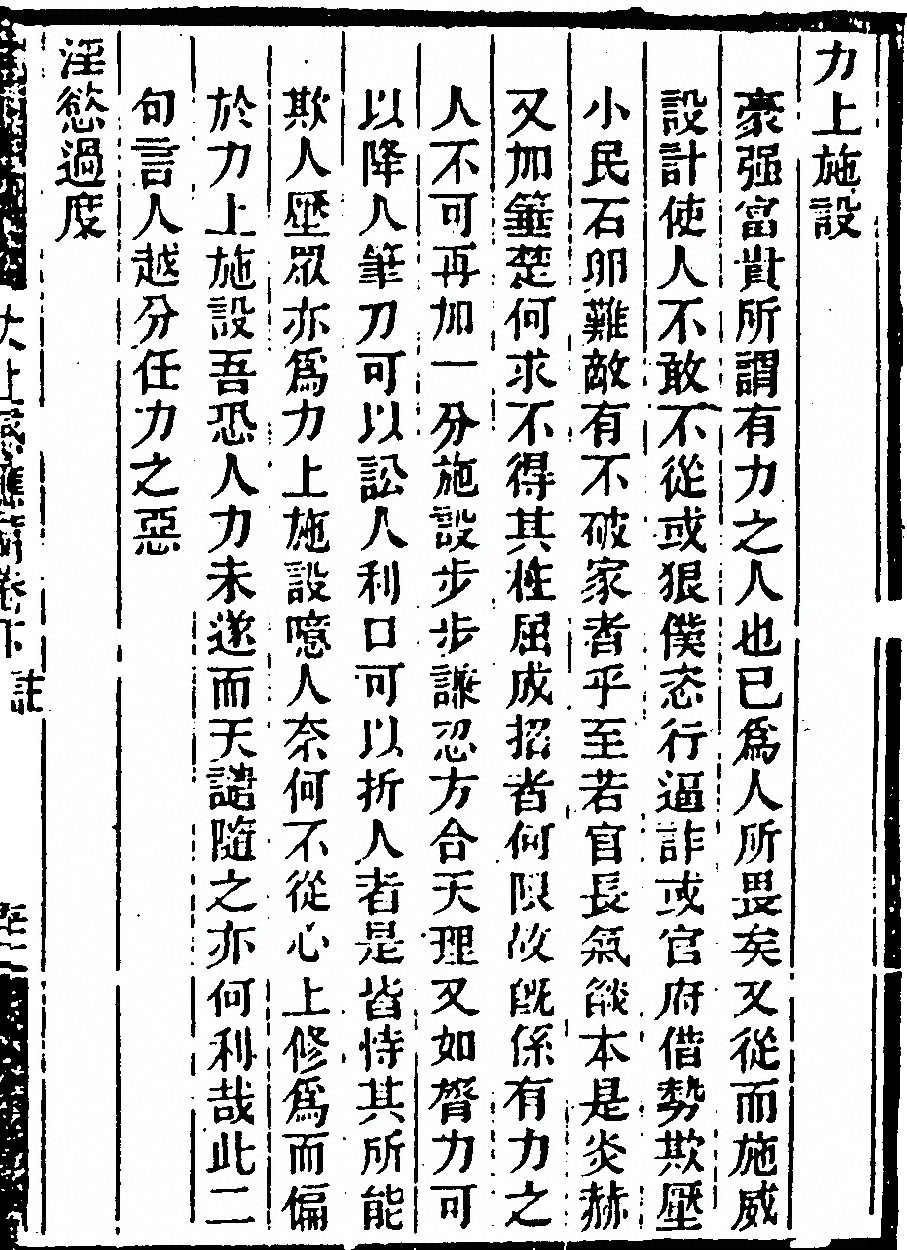 力上施設
豪强富貴所謂有力之人也已爲人所畏矣又從而施威
設計使人不敢不從或狠僕恣行逼詐或官府借勢欺壓
小民石卵難敵有不破家者乎至若官長氣燄本是炎赫
又加箠楚何求不得其枉屈成招者何限故旣係有力之
人不可再加一分施設步步謙忍方合天理又如膂力可
以降人筆刀可以訟人利口可以折人者是皆恃其所能
欺人壓眾亦爲力上施設噫人奈何不從心上修爲而偏
於力上施設吾恐人力未遂而天譴隨之亦何利哉此二
句言人越分任力之惡
淫慾過度
太上感應篇卷下 註